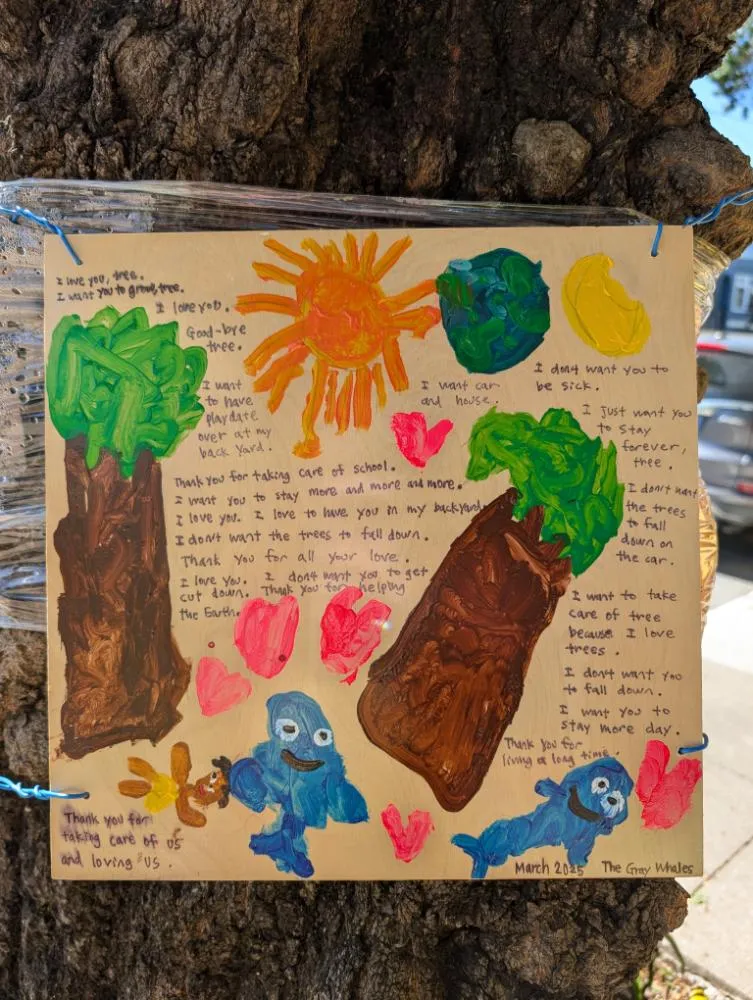 I love you, tree.
I want you to grow, tree.
I love you.
Good-bye
tree.
I want
to have
playdate
over at my
back yard.
I want car
and house.
I don't want you to
be sick.
I just want you
to stay
forever,
tree.
I don't want
the trees
to fall
down on
the car.
Thank you for taking care of school.
I want you to stay more and more and more.
I love you. I love to have you in my backyard.
I don't want the trees to fall down.
Thank you for all your love.
I love you. I don't want you to get
cut down. Thank you for helping
the Earth.
I want to take
care of tree
because I love
trees.
I don't want you
to fall down.
I want you to
stay more day.
Thank you for
living a long time.
Thank you for
taking care of us
and loving us.
March 2025 The Gray Whales